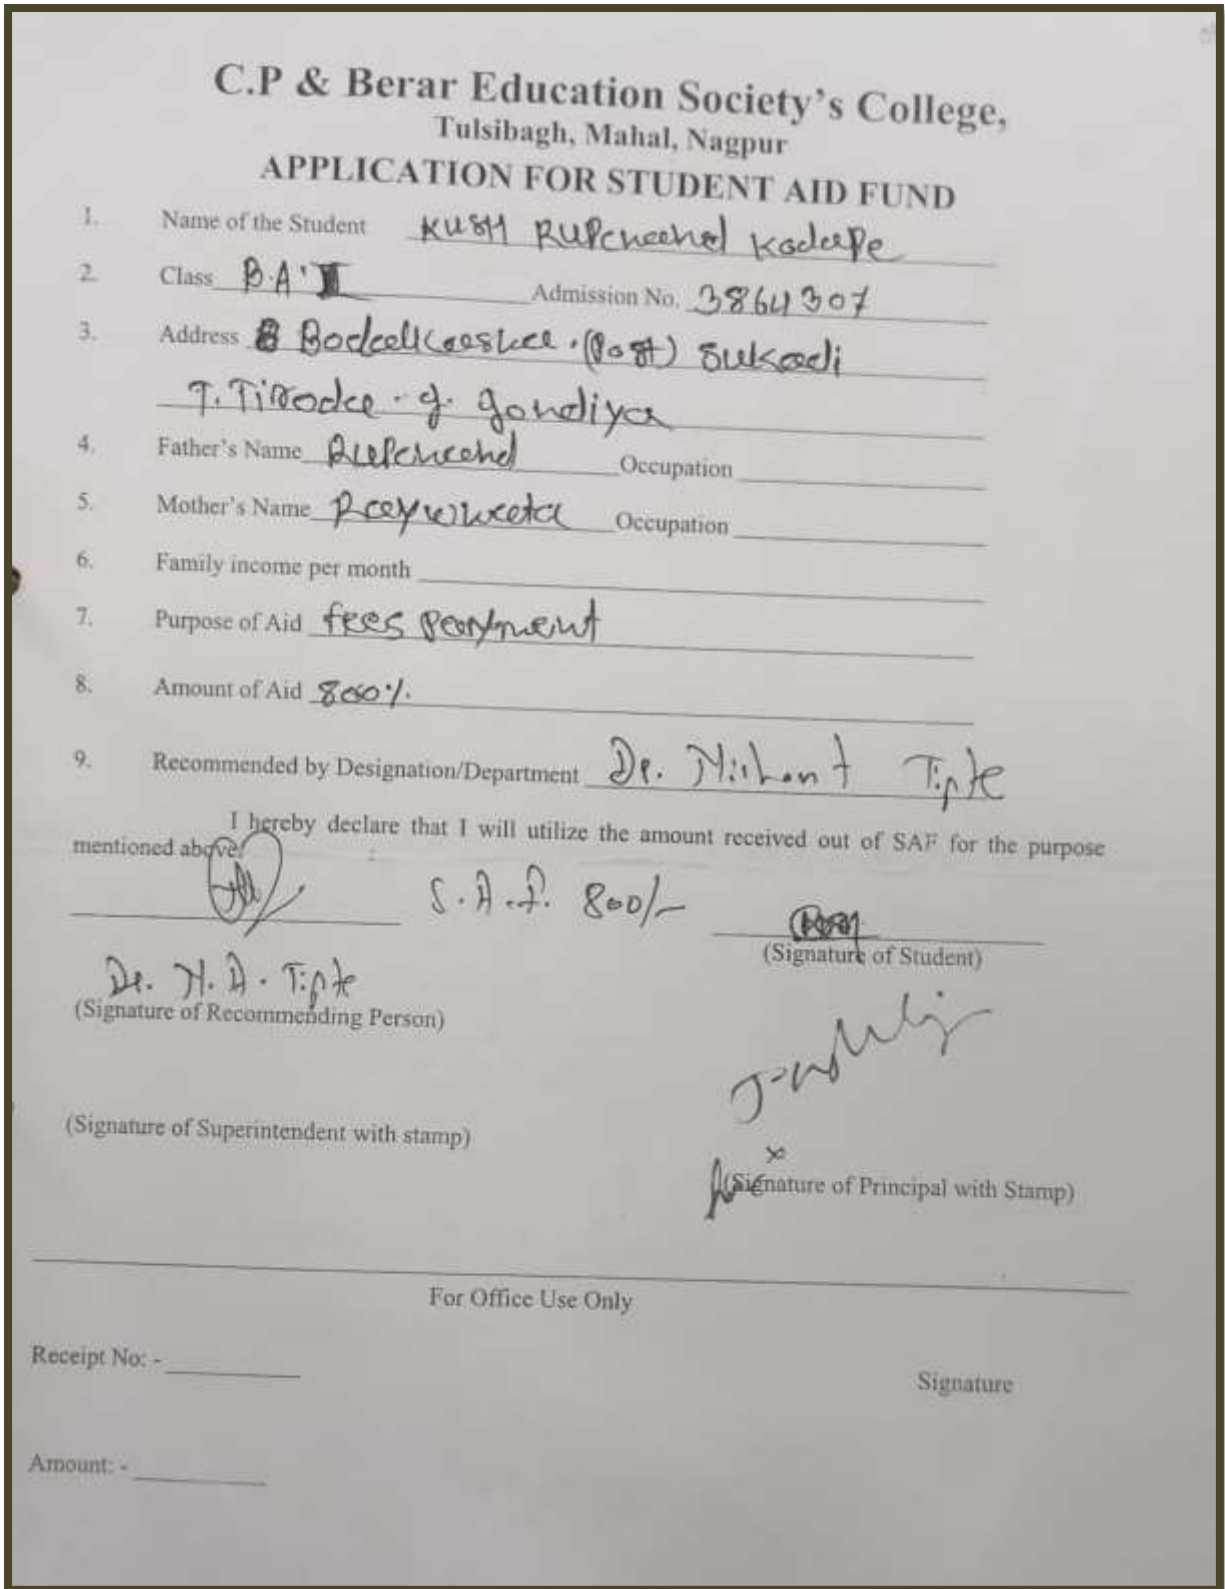 C.P & Berar Education Society's College,
Tulsibagh, Mahal, Nagpur
APPLICATION FOR STUDENT AID FUND
1. Name of the Student KUSH RUPchand Kodape
2. Class B.A. I Admission No. 3864307
3. Address (Post) Sukadi
T. Tiroda. J. gondiya
4. Father's Name Rupchand Occupation
5. Mother's Name Occupation
6. Family income per month
7. Purpose of Aid fees payment
8. Amount of Aid 800%.
9. Recommended by Designation/Department Dr. Nishant Tipte
I hereby declare that I will utilize the amount received out of SAF for the purpose
mentioned above.
S.A.F. 800/-
(Signature of Student)
Dr. N. D. Tipte
(Signature of Recommending Person)
(Signature of Superintendent with stamp)
(Signature of Principal with Stamp)
For Office Use Only
Receipt No: -
Signature
Amount: -